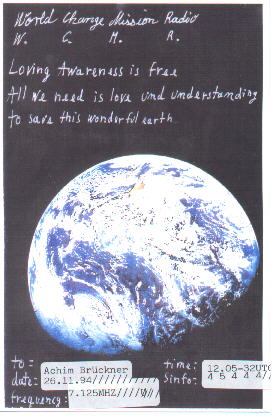 World Change Mission Radio
W. C. M. R.
Loving Awareness is free
All we need is love und understanding
to save this wonderful earth.
to = Achim Brückner time: 12.05-32UTC
date: 26.11.94////////// Sinfo: 4 5 4 4 4//
frequency: 7.125MHZ////W//